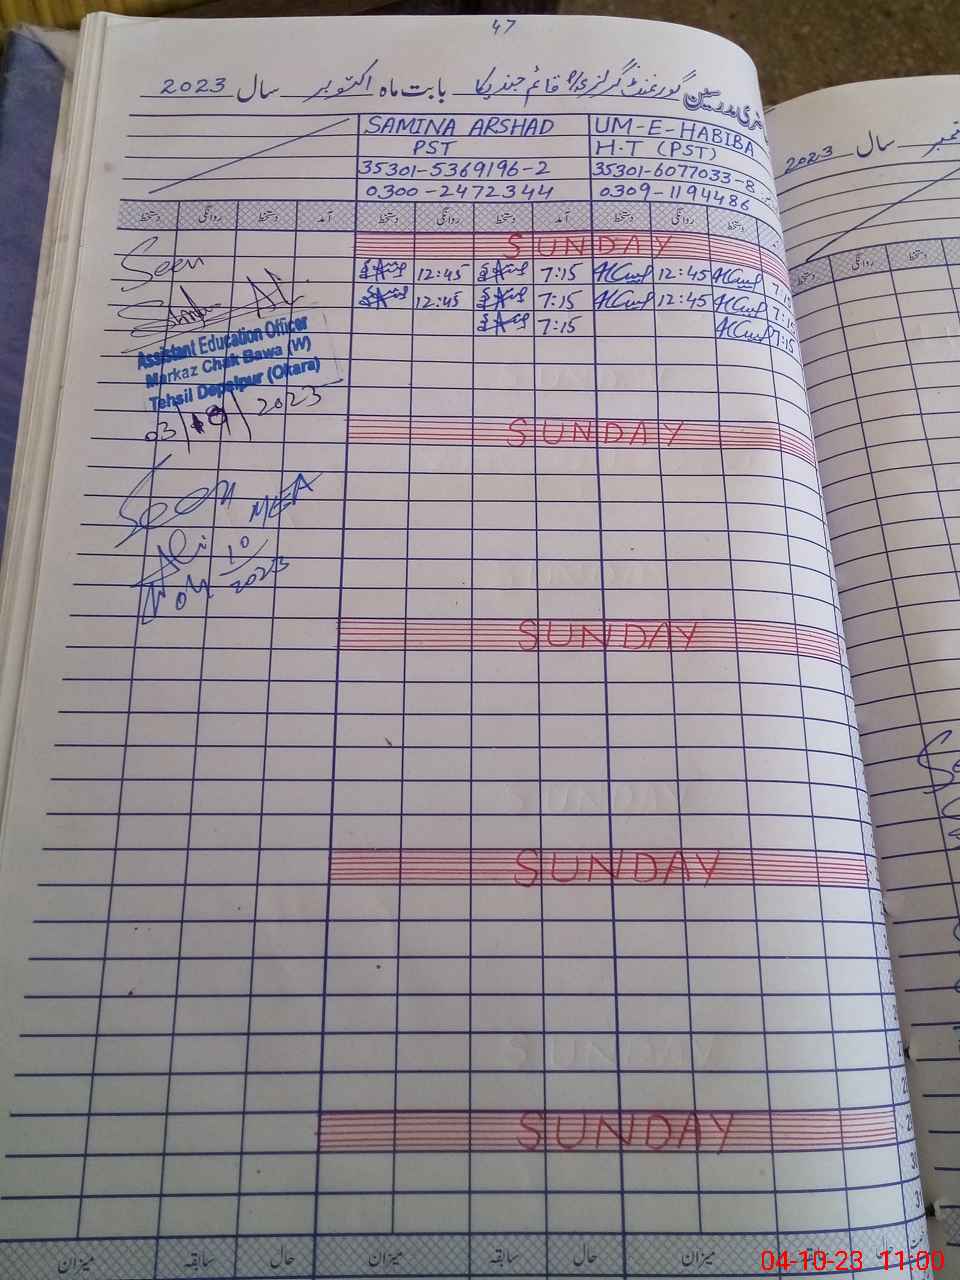 47
حاضری مدرسین گورنمنٹ گرلز پرائمری قائم جنڈیکا بابت ماہ اکتوبر سال 2023
SAMINA ARSHAD UM-E-HABIBA
PST H.T (PST)
35301-5369196-2 35301-6077033-8
0300-2472344 0309-1194486
دستخط روانگی دستخط آمد دستخط روانگی دستخط آمد دستخط روانگی دستخط
SUNDAY
Seen
12:45 7:15 12:45 7:15
12:45 7:15 12:45 7:15
7:15 7:15
Assistant Education Officer
Markaz Chak Bawa (W)
Tehsil Depalpur (Okara)
2023
SUNDAY
Seen
MEA
10
2023
SUNDAY
SUNDAY
SUNDAY
میزان سابقہ حال میزان سابقہ حال میزان سابقہ حال
سال 2023
روانگی دستخط
04-10-23 11:00